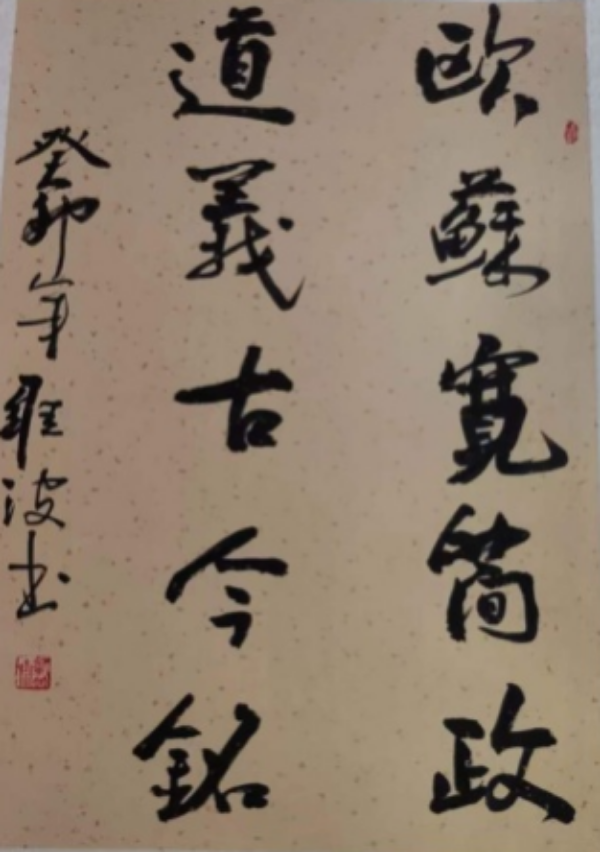 歐蘇寬簡政
道義古今銘
癸卯年維波书